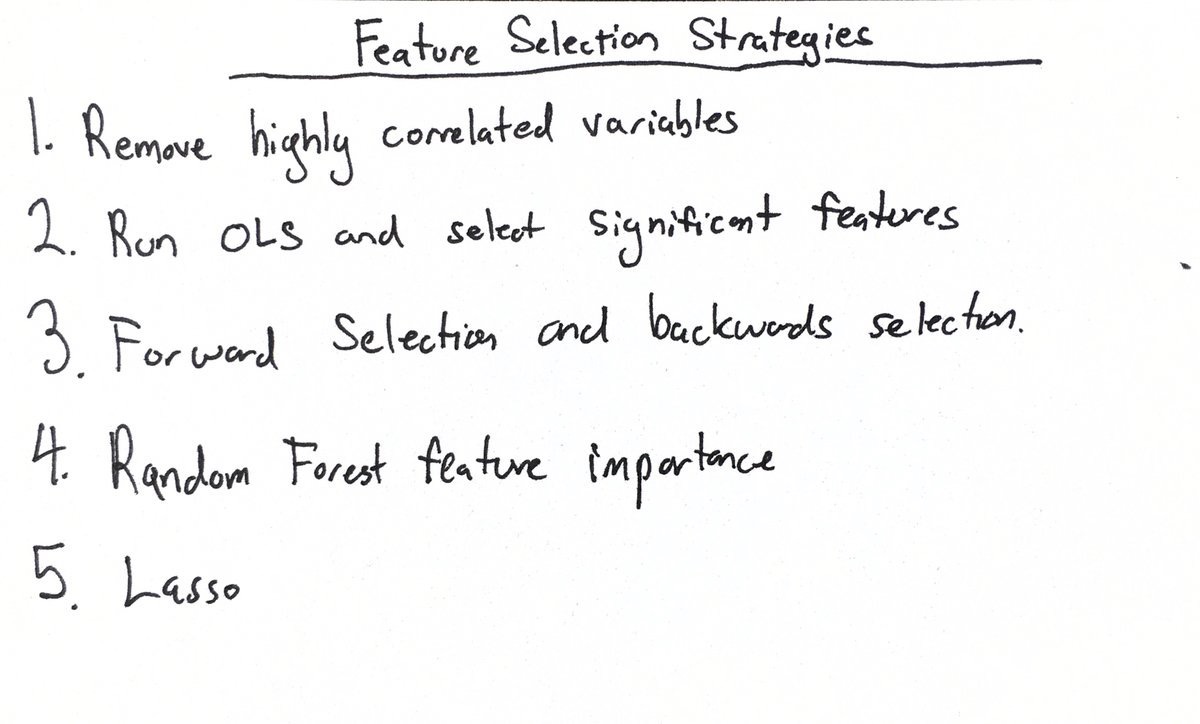 Feature Selection Strategies
1. Remove highly correlated variables
2. Run OLS and select significant features
3. Forward Selection and backwards selection.
4. Random Forest feature importance
5. Lasso